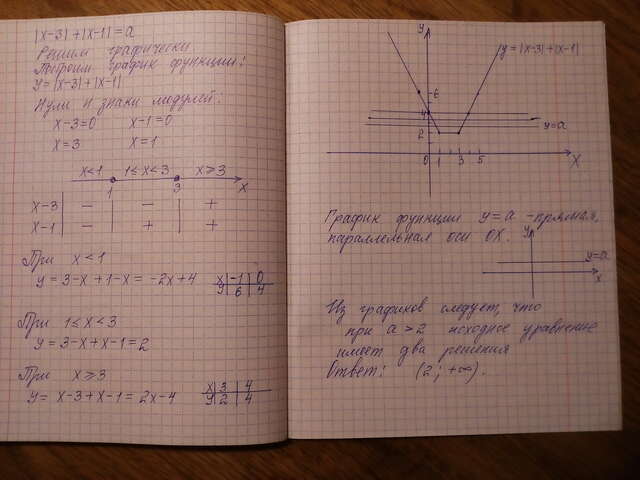 |x-3|+|x-1|=a
Решим графически
Построим график функции:
y=|x-3|+|x-1|
Нули и знаки модулей:
x-3=0 x-1=0
x=3 x=1
x<1 1≤x<3 x≥3
1 3 x
x-3 - - +
x-1 - + +
При x<1
y=3-x+1-x=-2x+4
x -1 0
y 6 4
При 1≤x<3
y=3-x+x-1=2
При x≥3
y=x-3+x-1=2x-4
x 3 4
y 2 4
y
y=|x-3|+|x-1|
6
4
y=a
2
0 1 3 5 x
График функции y=a -прямая,
параллельная оси OX.
y
y=a
x
Из графиков следует, что
при a>2 исходное уравнение
имеет два решения
Ответ: (2; +∞).